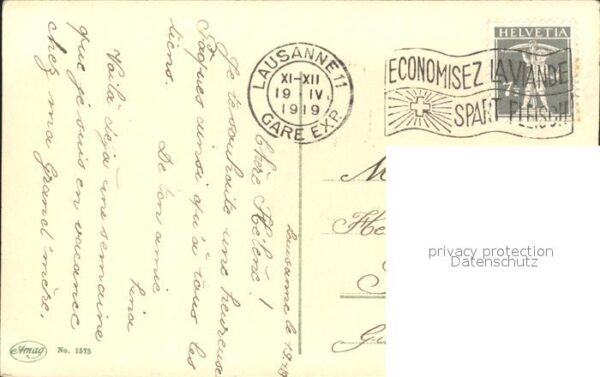 HELVETIA
LAUSANNE 11
XI-XII
19 IV
1919
GARE EXP.
ECONOMISEZ LA VIANDE
SPART FLEISCH
Lausanne le
Chère Hélène!
Je te souhaite une heureuse
Pâques ainsi qu'à tous les
tiens.
De ton amie
Lina
Voilà déjà une semaine
que je suis en vacance
chez ma Grand'mère.
M
He
privacy protection
Datenschutz
Amag
No. 1575